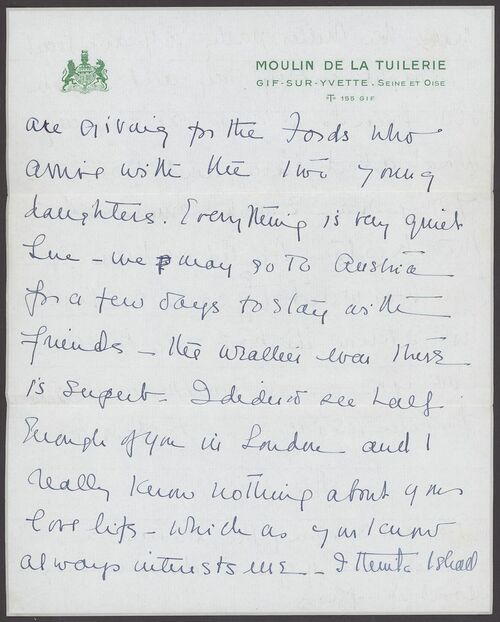 MOULIN DE LA TUILERIE
GIF-SUR-YVETTE. SEINE ET OISE
T 155 GIF
are giving for the Fords who
arrive with the two young
daughters. Everything is very quiet
here – we may go to Austria
for a few days to stay with
friends – the weather over there
is superb. I didn't see half
enough of you in London and I
really know nothing about your
love life – which as you know
always interests me – I think I shall